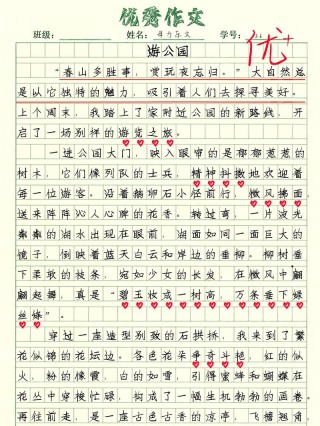 优秀作文
班级: 姓名: 学号:
优+
游公园
“春山多胜事，赏玩夜忘归。”大自然总
是以它独特的魅力，吸引着人们去探寻美好。
上个周末，我踏上了家附近公园的新路线，开
启了一场别样的游览之旅。
一进公园大门，映入眼帘的是郁郁葱葱的
树木，它们像列队的士兵，精神抖擞地欢迎着
每一位游客。沿着鹅卵石小径前行，微风拂面，
送来阵阵沁人心脾的花香。转过弯，一片波光
粼粼的湖水出现在眼前，湖面如同一面巨大的
镜子，倒映着蓝天白云和岸边的垂柳。柳树垂
下柔软的枝条，宛如少女的长发，在微风中翩
翩起舞，真是“碧玉妆成一树高，万条垂下绿
丝绦”。
穿过一座造型别致的石拱桥，我来到了繁
花似锦的花坛边。各色花朵争奇斗艳，红的似
火，粉的像霞，白的如雪，引得蜜蜂和蝴蝶在
花丛中穿梭忙碌，构成了一幅生机勃勃的画卷。
再往前走，是一座古色古香的凉亭，飞檐翘角，